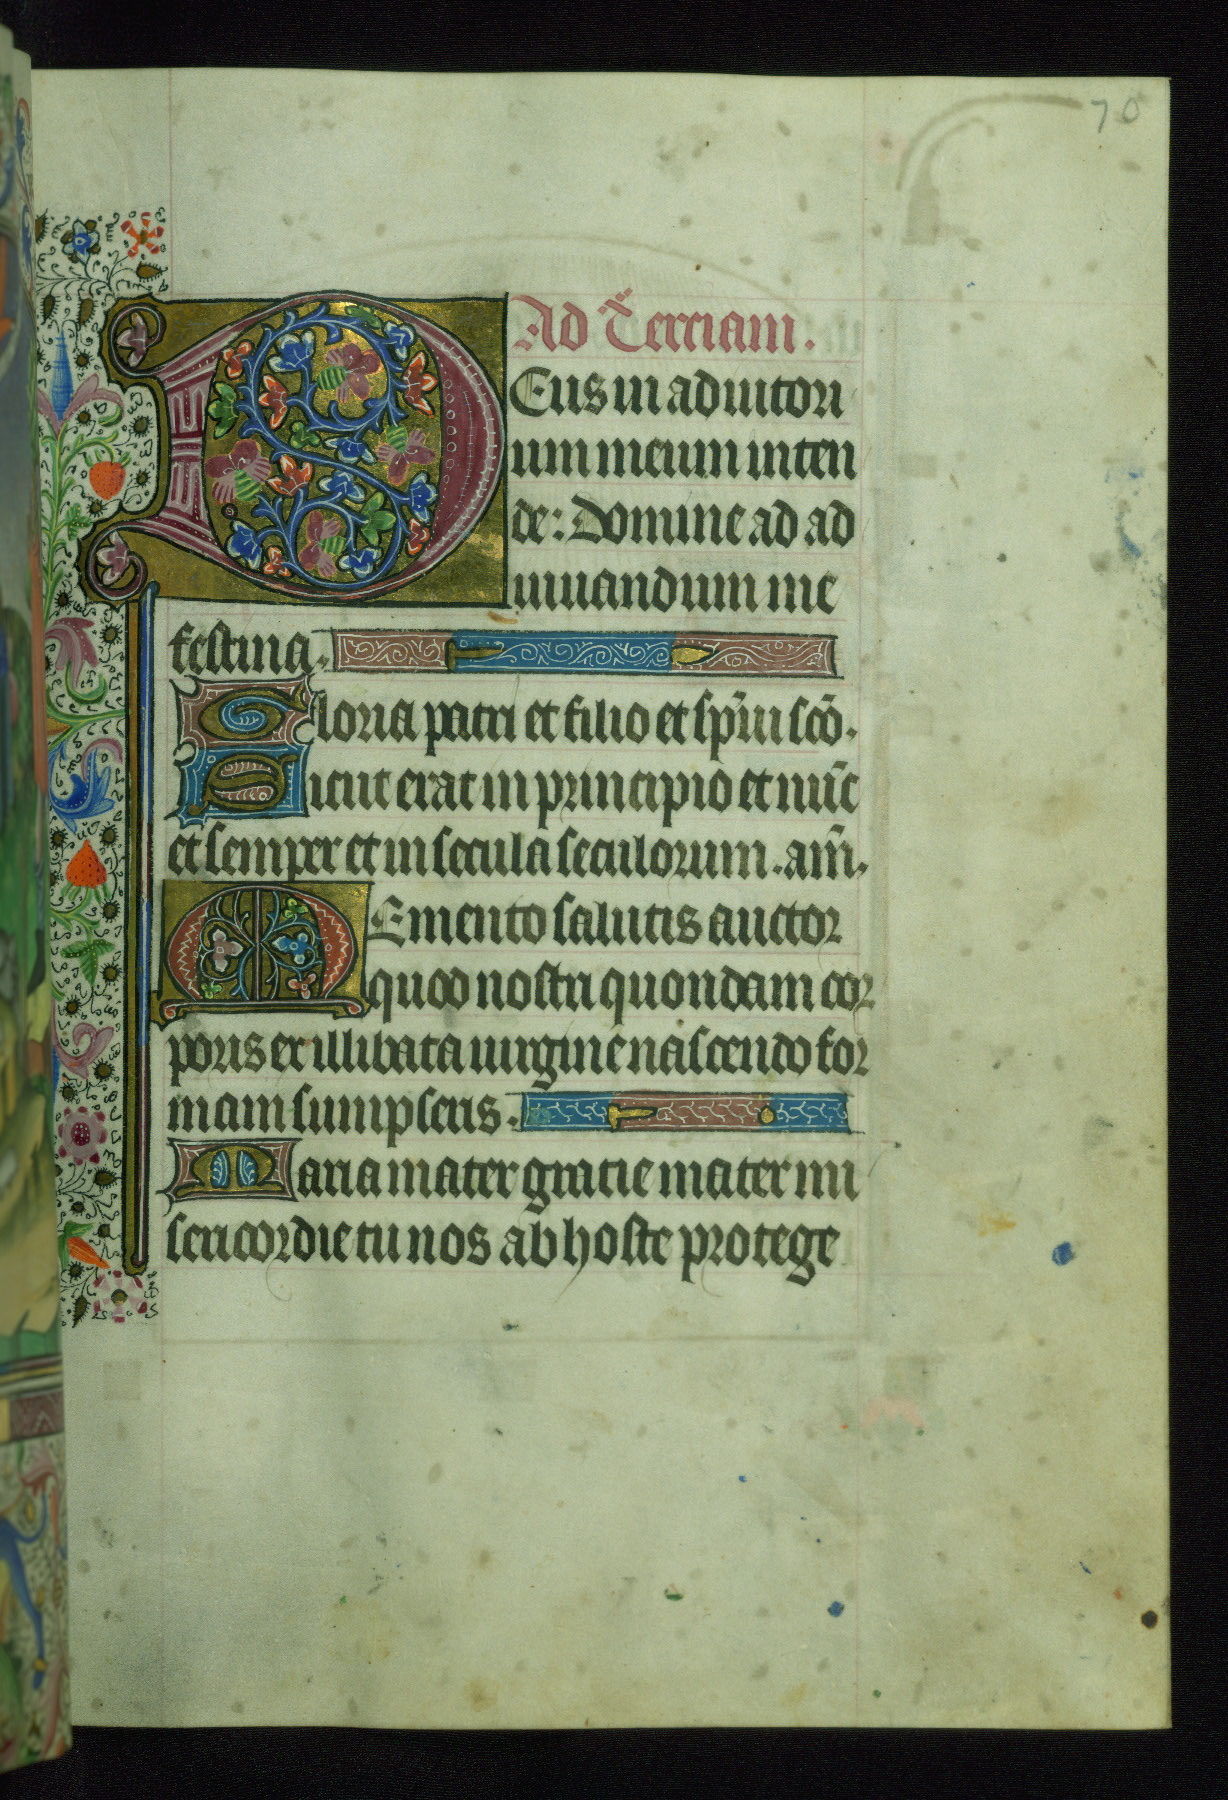 70
Ad Terciam.
DEus in adiutori
um meum inten
de: Domine ad ad
iuuandum me
festina.
Gloria patri et filio et sp̄ui scō.
Sicut erat in principio et nūc
et semper et in secula seculorum. am̄.
MEmento salutis auctor
quod nostri quondam cor
poris ex illibata uirgine nascendo for
mam sumpseris.
Maria mater gratie mater mi
sericordie tu nos ab hoste protege